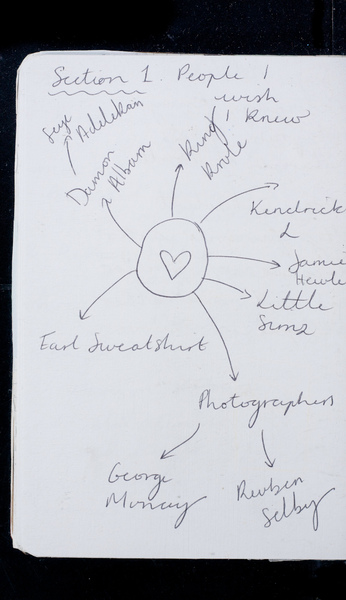 Section 1. People I
wish
I knew
Seye
Adelekan
Damon
Albarn
King
Krule
Kendrick
L
Jamie
Hewle
Little
Simz
Earl Sweatshirt
Photographers
George
Muncey
Reuben
Selby